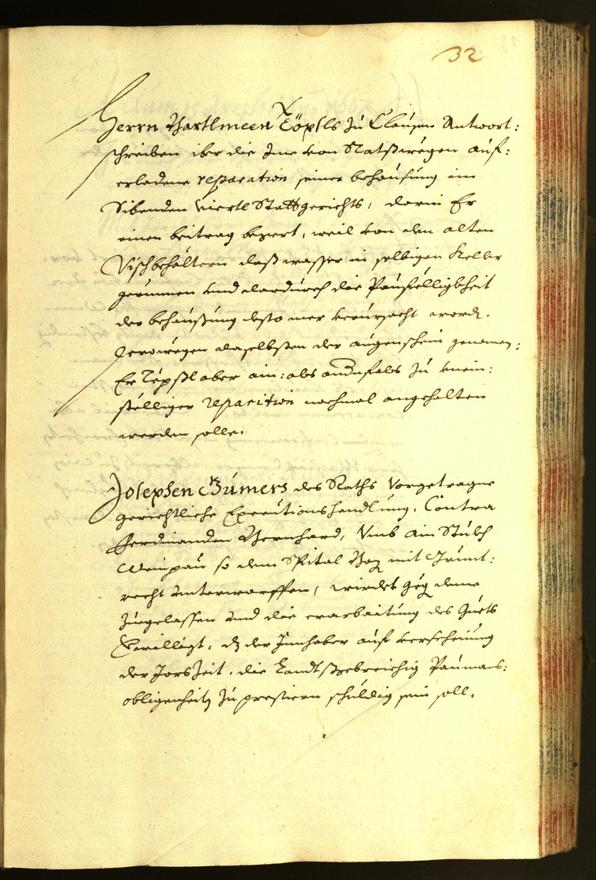 32
Herrn Barthlmeen Töpsls zu Clausen Antwort:
schreiben iber die Ime von Statswegen auf:
erladene reparation seiner behausung im
Sibenden Viertl Stattgerichts, darin Er
einen beitrag begert, weil von den alten
Vischbehaltern daß wasser in selbigen Keller
gerunnen und dardurch die Paufelligkheit
der behaußung desto mer verursacht word.
derwegen daselbsten der augenschein genomen:
Er Töpsl aber ain: als andnfals zu
reparation nochmal angehalten
werden solle.
Josephen Gumers des Raths Vorgetragne
gerichtliche Executionshandlung, Contra
Ferdinanden Bernhard, Umb Ain Stukh
Weinpau so dem Spital mit Grunt:
recht underworffen, wirdet
Zuegelassen und die erarbaitung des Guets
bewilligt, dz der Innhaber auf verscheinung
der Jars Zeit, die Landtßgebreichig Paumans:
obligenheit zu prestiern schuldig sein soll.